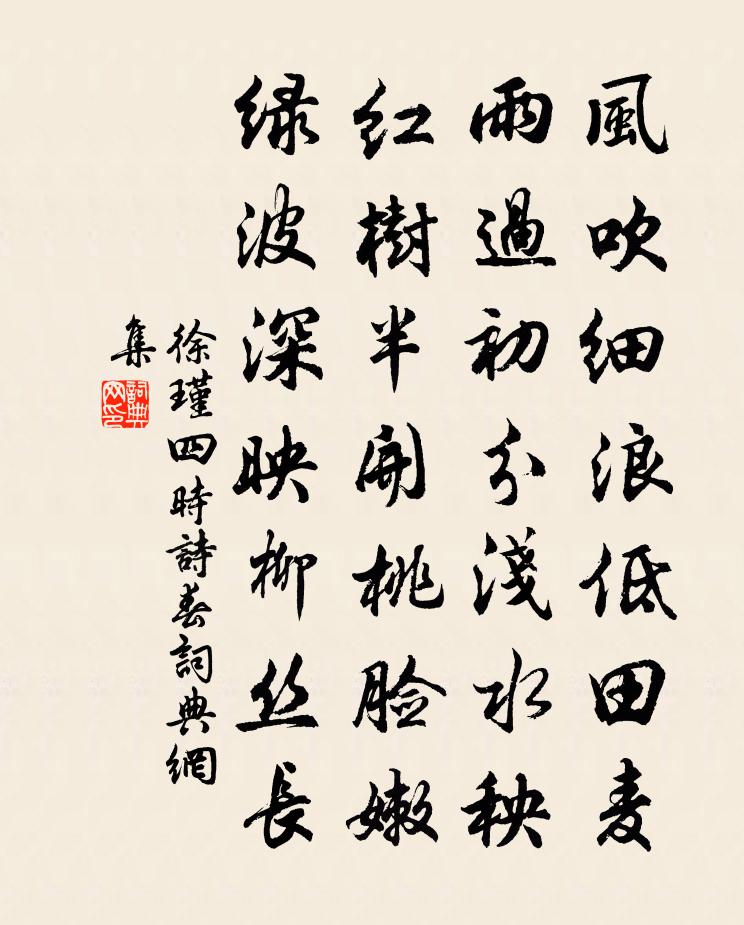 風吹细浪低田麦
雨過初分淺水秧
红樹半開桃脸嫩
绿波深映柳丝長
徐瑾四時詩春詞典網
集
詞典
网印